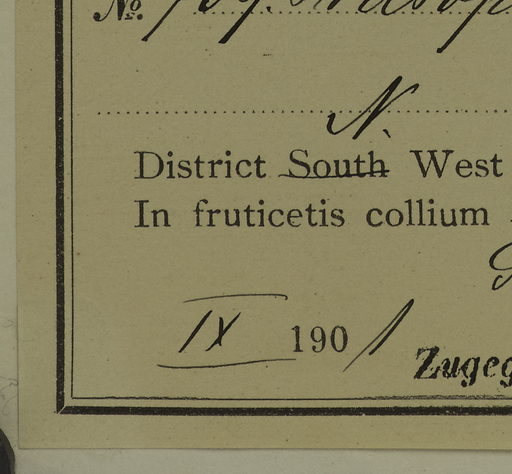 No. 
N.
District South West
In fruticetis collium
IX 1901
Zugeg